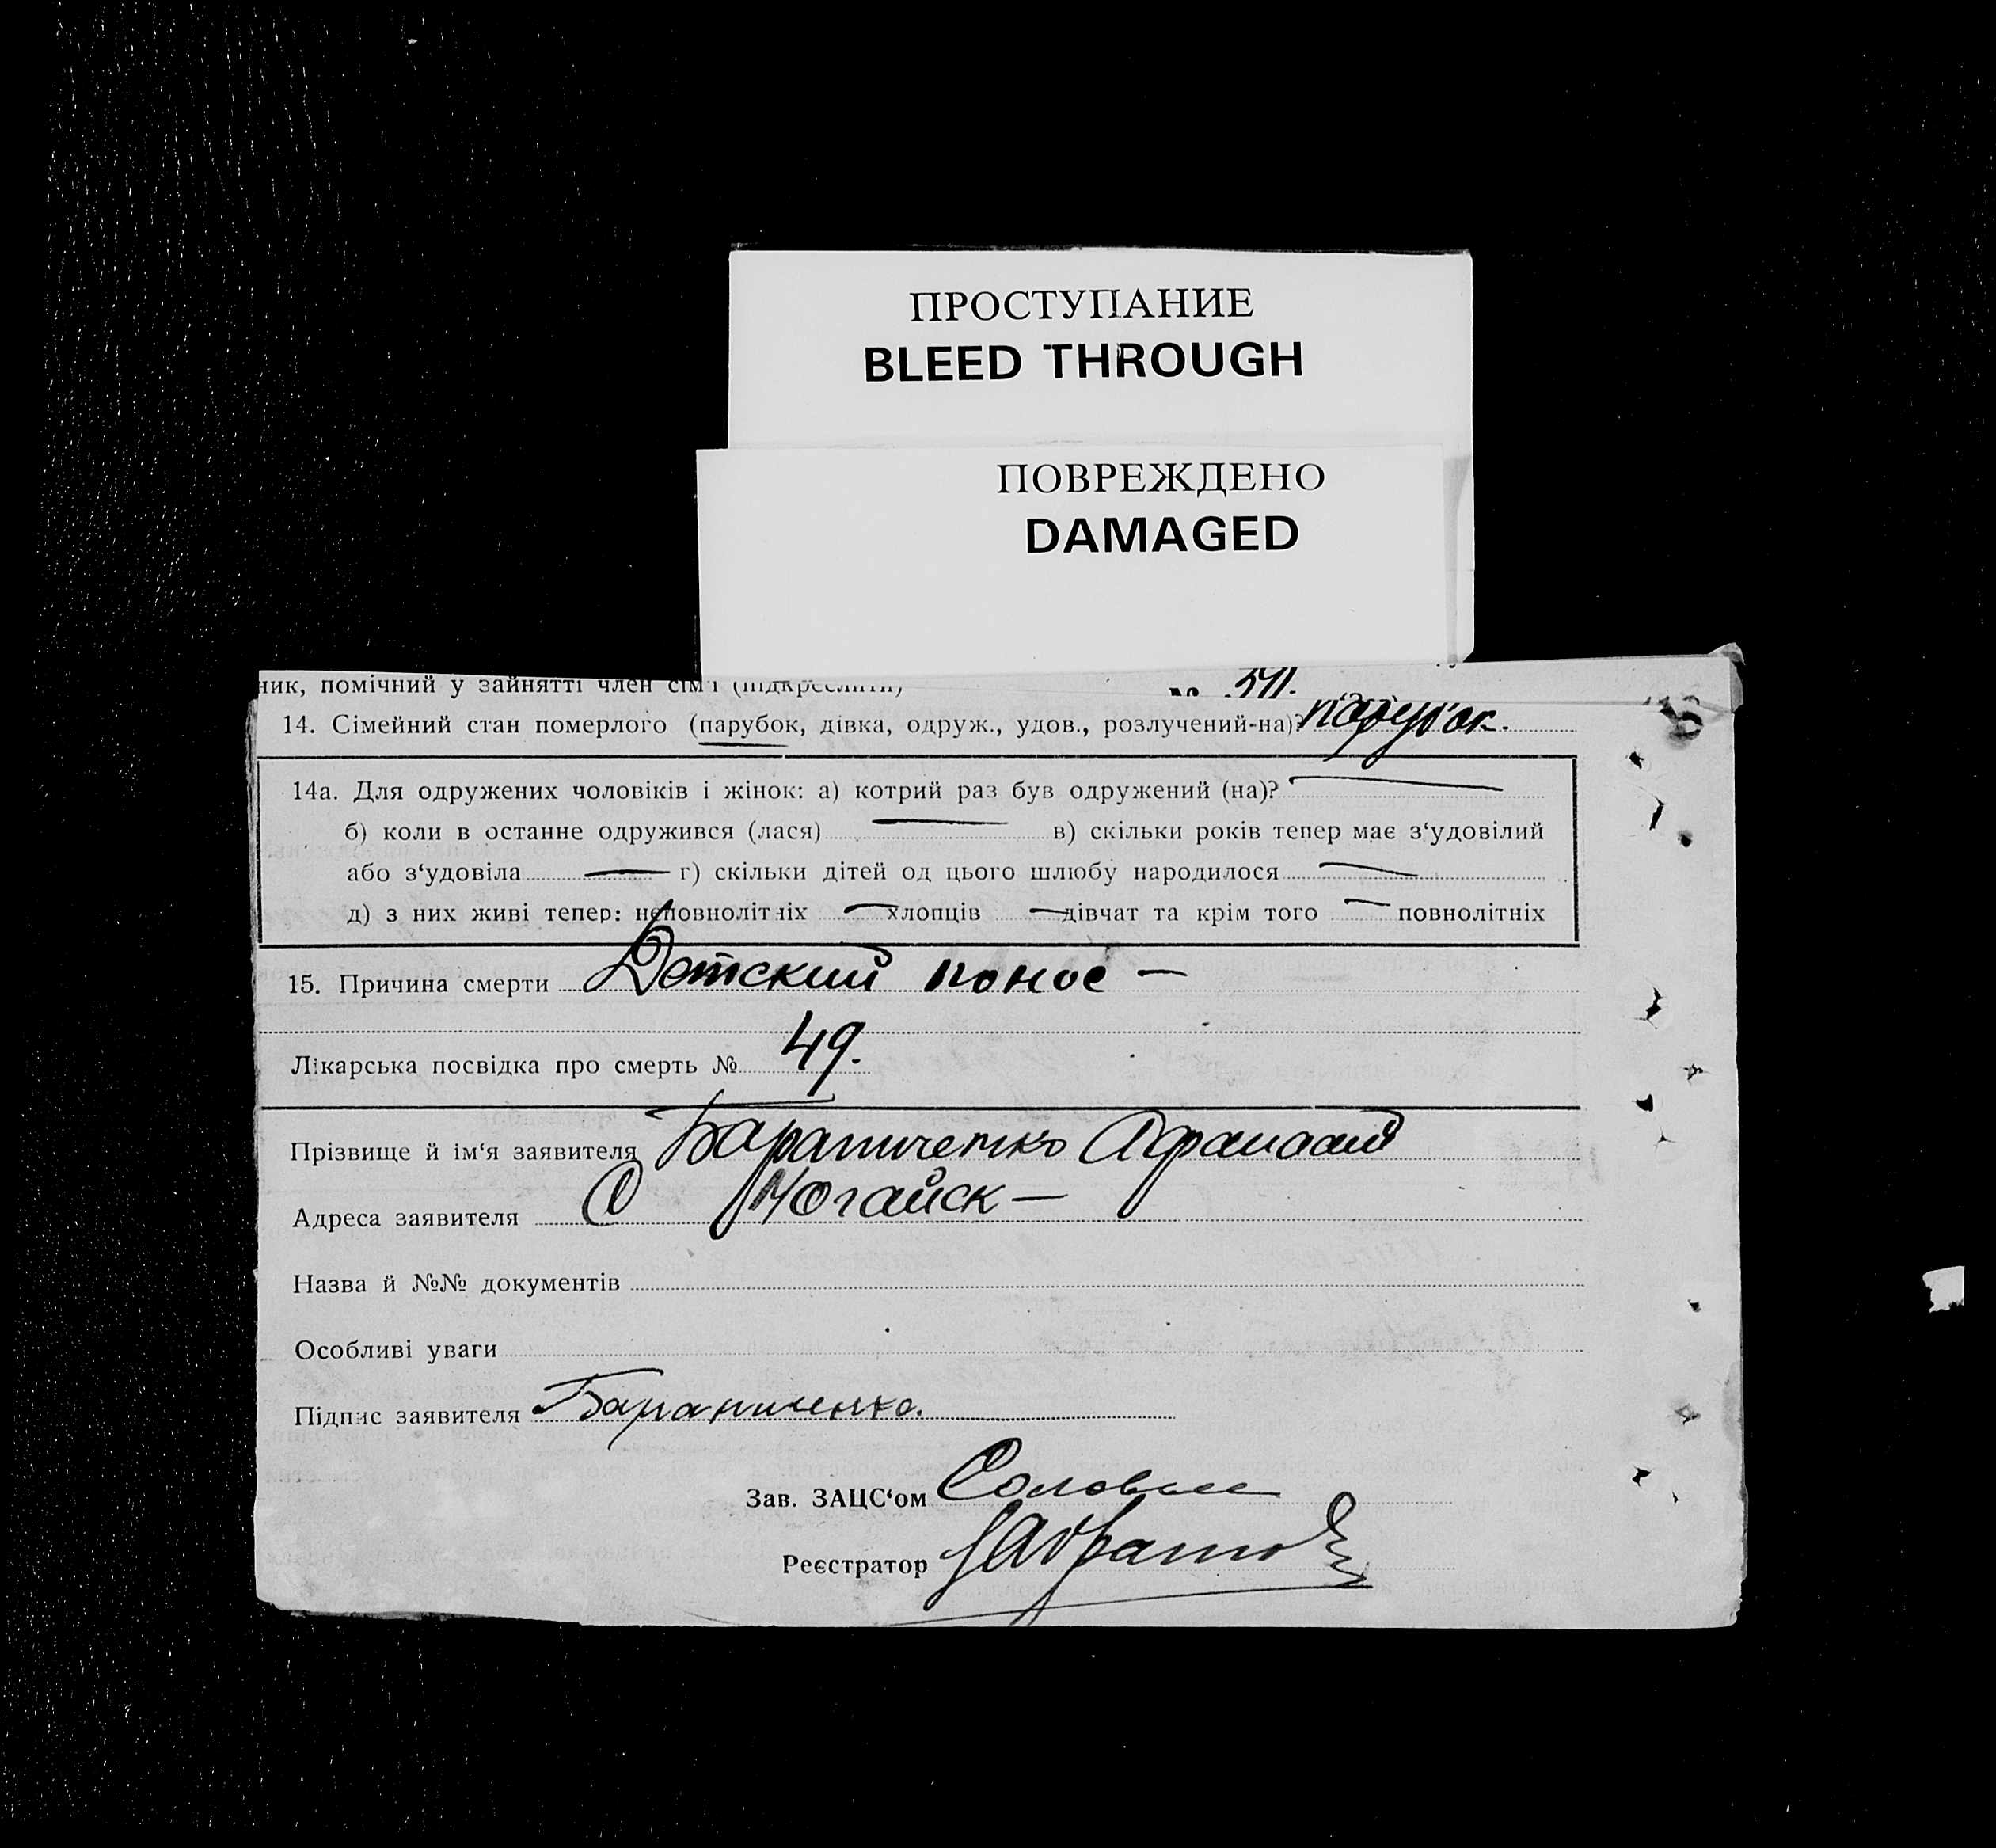 ПРОСТУПАНИЕ
BLEED THROUGH
ПОВРЕЖДЕНО
DAMAGED
ник, помічний у зайнятті член сім'ї (підкреслити)
№ 511.
14. Сімейний стан померлого (парубок, дівка, одруж., удов., розлучений-на)? парубок.
14а. Для одружених чоловіків і жінок: а) котрий раз був одружений (на)? —
б) коли в останне одружився (лася) — в) скільки років тепер має з‘удовілий
або з‘удовіла — г) скільки дітей од цього шлюбу народилося —
д) з них живі тепер: неповнолітніх — хлопців — дівчат та крім того — повнолітніх
15. Причина смерти Детский понос —
Лікарська посвідка про смерть № 49.
Прізвище й ім‘я заявителя Бараниченко Афанасий
Адреса заявителя Ногайск —
Назва й №№ документів
Особливі уваги
Підпис заявителя Бараниченко.
Зав. ЗАЦС‘ом
Реєстратор